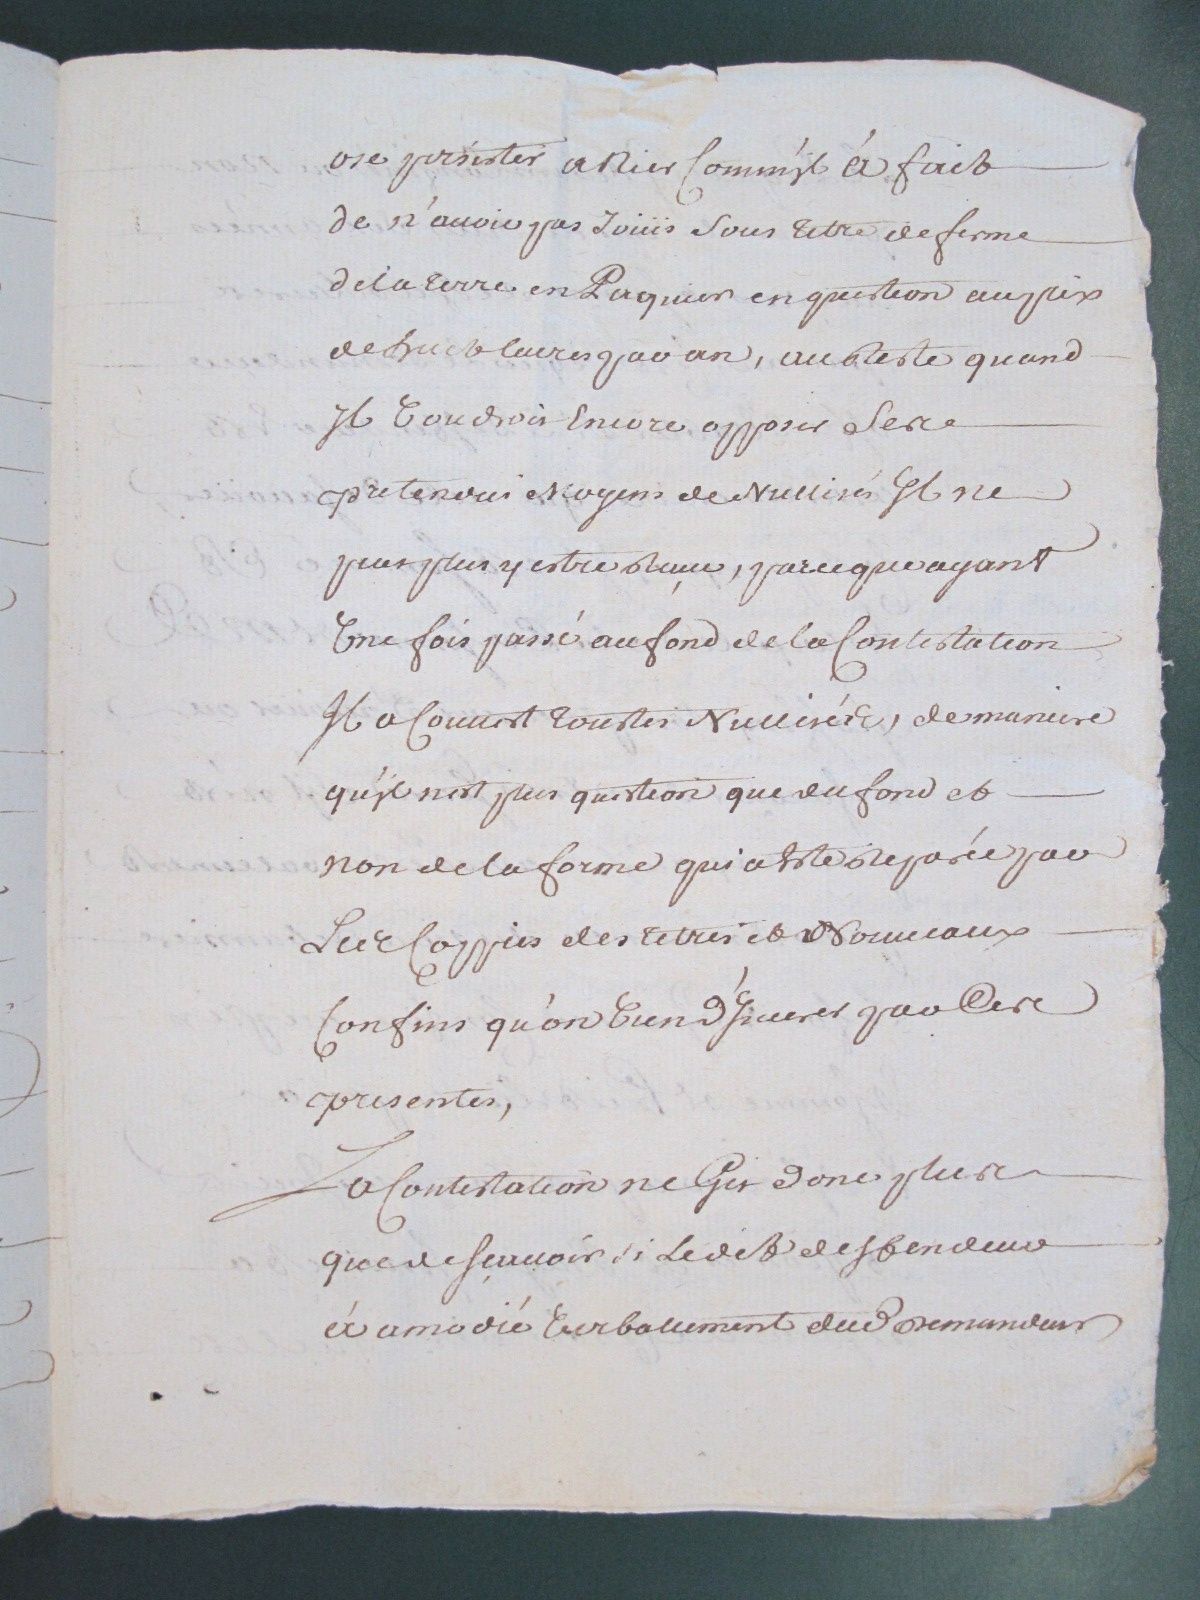 ose persister a Nier Comm'jl à fait
de n'auoir pas Joüis sous titre de ferme
de la terre en Paquier en question au prix
de huit liures par an, au reste quand
Jl Voudroit Encore opposer Ses
pretendus Moyens de Nullités Jl ne
peut plus y estre receu, parceque ayant
Vne fois passé au fond de la Contestation
Jl a Couuert toutes Nullités, de maniere
qu'jl n'est plus question que du fond et
non de la forme qui a esté reparée par
Les Coppies des titres et Nouueaux
Confins qu'on Vient d'Jnserer par Ces
presentes,
La Contestation ne Git donc plus
que de sçauoir si Ledit deffendeur
à amodié Verbalement dud. Demandeur